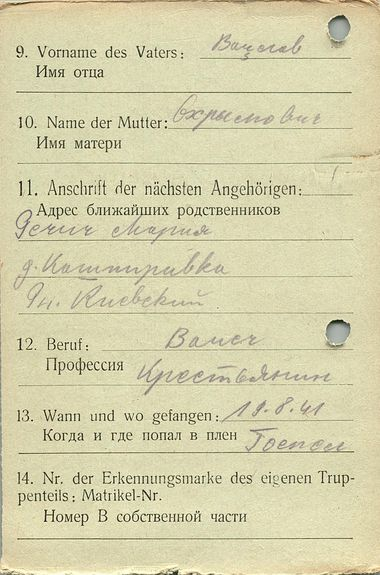 9. Vorname des Vaters: Вацлав
Имя отца
10. Name der Mutter: Охрымович
Имя матери
11. Anschrift der nächsten Angehörigen:
Адрес ближайших родственников
Мария
д. Каштиривка
Киевский
12. Beruf:
Профессия Крестьянин
13. Wann und wo gefangen: 19.8.41
Когда и где попал в плен
14. Nr. der Erkennungsmarke des eigenen Trup-
penteils: Matrikel-Nr.
Номер В собственной части